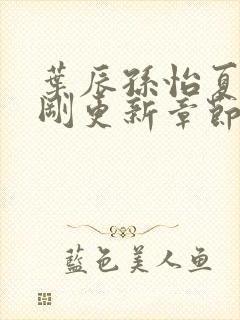 葉辰孫怡夏
剛更新章節
藍色美人鱼